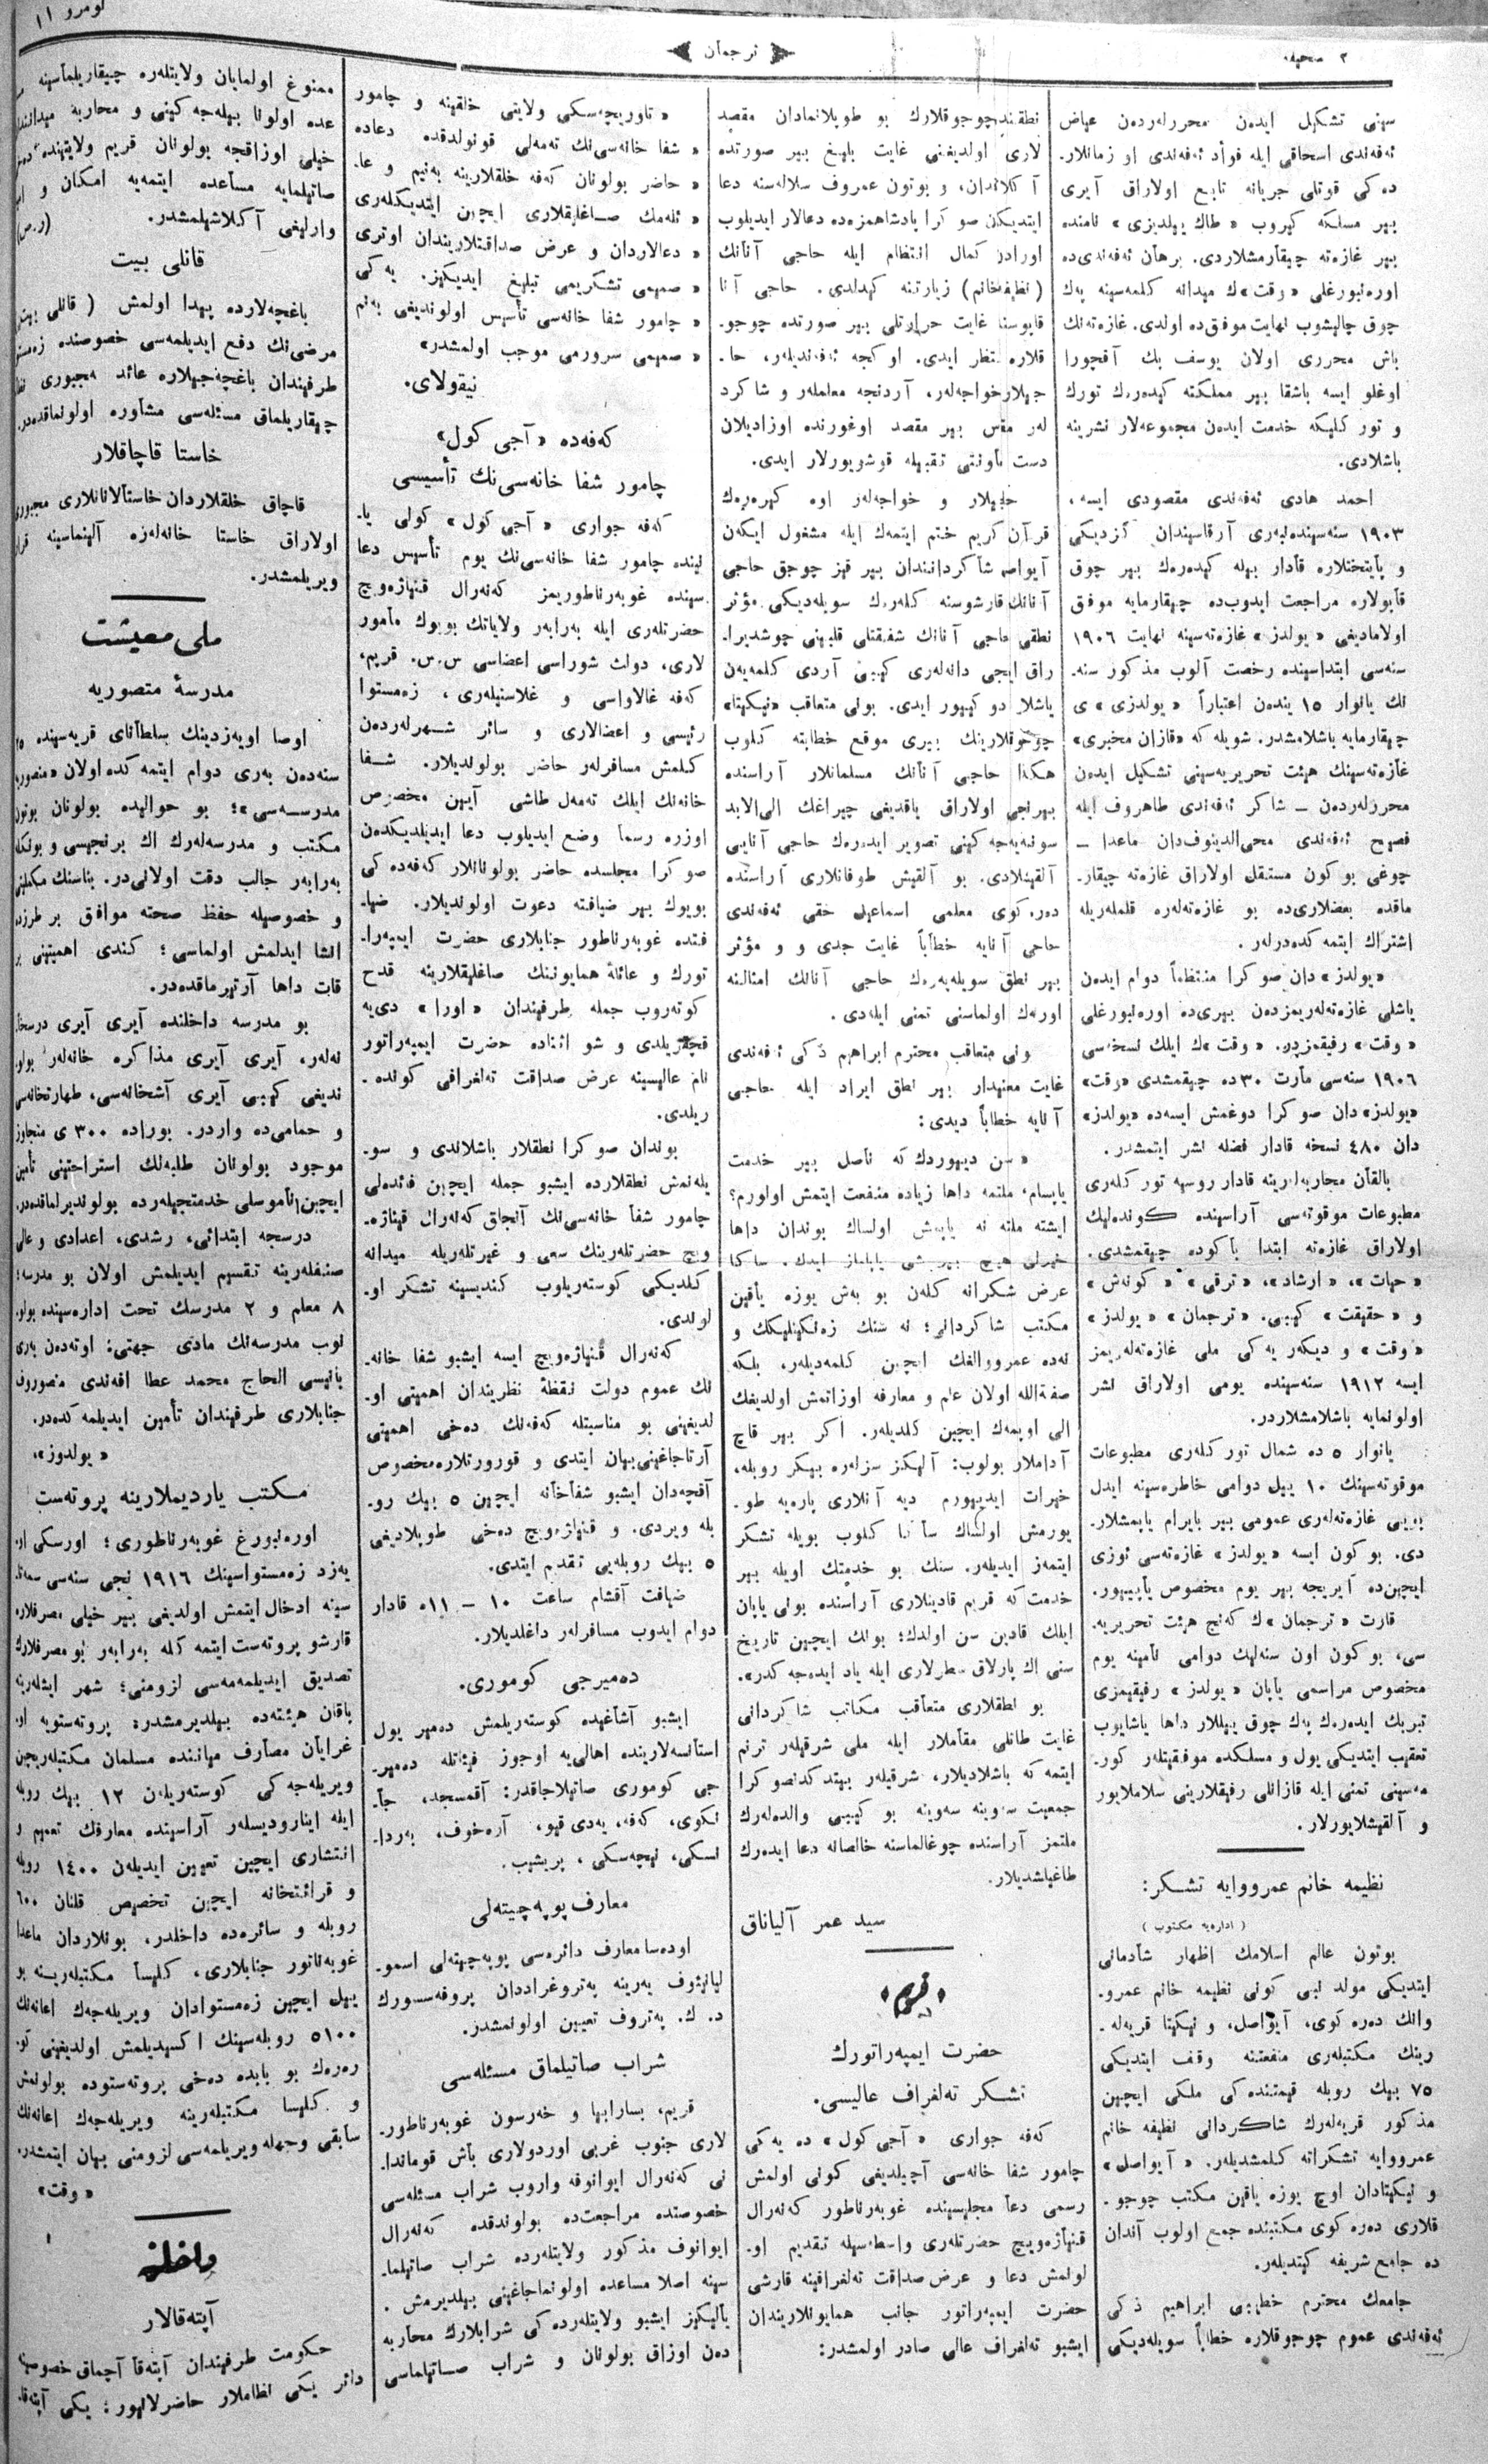 ٢ صحیفه
ترجمان
نومرو ١١
سنی تشکیل ایدەن محررلەردەن عیاض
ئەفەندی اسحاقی ایله فوأد ئەفەندی او زمانلار.
دەکی قوتلی جریانه تابع اولاراق آیری
بیر مسلکه کیروب « طاڭ ییلدیزی » نامنده
بیر غازەته چیقارمشلاردی. برهان ئەفەندی‌ده
اورەنبورغلی « وقت »ڭ میدانه کلمەسینه پەك
چوق چالیشوب نهایت موفق‌ده اولدی. غازەتەنڭ
باش محرری اولان یوسف بك آقچورا
اوغلو ایسه باشقا بیر مملکته کیدەرك تورك
و تورکلیکه خدمت ایدەن مجموعەلار نشرینه
باشلادی.
احمد هادی ئەفەندی مقصودی ایسه،
١٩٠٣ سنەسینده‌لبەری آرقاسیندان گزدیکی
و پأیتختلاره قأدار بیله کیدەرەك بیر چوق
قأپولاره مراجعت ایدوب‌ده چیقارمایه موفق
اولامادیغی « یولدز » غازەتەسینه نهایت ١٩٠٦
سنەسی ابتداسینده رخصت آلوب مذکور سنه.
نڭ یانوار ١٥ یندەن اعتباراً « یولدزی » ی
چیقارمایه باشلامشدر. شویله که «قازان مخبری»
غأزەتەسینڭ هیئت تحریریەسینی تشکیل ایدەن
محررلەردەن ــ شاکر ئەفەندی طاهروف ایله
فصیح ئەفەندی محی‌الدینوف‌دان ماعدا ــ
چوغی بوکون مستقل اولاراق غازەته چیقار.
ماقده بعضلاری‌ده بو غازەتەلەره قلملەریله
اشتراك ایتمەکدەدرلەر.
«یولدز»دان صوکرا منتظماً دوام ایدەن
یاشلی غازەتەلەریمزدەن بیری‌ده اورەنبورغلی
« وقت » رفیقمزدر. « وقت »ڭ ایلك نسخەسی
١٩٠٦ سنەسی مأرت ٣٠ده چیقمشدی «وقت»
«یولدز»دان صوکرا دوغمش ایسەده «یولدز»
دان ٤٨٠ نسخه قادار فضله نشر ایتمشدر.
بالقأن محاربەلرینه قادار روسیه تورکلەری
مطبوعات موقوتەسی آراسینده کوندەلیك
اولاراق غازەته ابتدا باکوده چیقمشدی.
« حیات »، « ارشاد »، « ترقی » « کونەش »
و « حقیقت » کیبی. « ترجمان » « یولدز »
« وقت » و دیکەر یەکی ملی غازەتەلەریمز
ایسه ١٩١٢ سنەسینده یومی اولاراق نشر
اولونمایه باشلامشلاردر.
یانوار ٥ ده شمال تورکلەری مطبوعات
موقوتەسینڭ ١٠ ییل دوامی خاطرەسینه ایدل
بویی غازەتەلەری عمومی بیر بایرام یاپمشلار.
دی. بوکون ایسه « یولدز » غازەتەسی ئوزی
ایچین‌ده آیریجه بیر یوم مخصوص یأپییور.
قارت « ترجمان »ڭ کەنج هیئت تحریریه.
سی، بوکون اون سنەلیك دوامی نأمینه یوم
مخصوص مراسمی یاپان « یولدز » رفیقیمزی
تبریك ایدەرەك پەك چوق ییللار داها یاشایوب
تعقیب ایتدیکی یول و مسلکده موفقیتلەر کور.
مەسینی تمنی ایله قازانلی رفیقلارینی سلاملایور
و آلقیشلایورلار.
نظیمه خانم عمرووایه تشکر:
( ادارەیه مکتوب )
بوتون عالم اسلامك اظهار شأدمانی
ایتدیکی مولد نبی کونی نظیمه خانم عمرو.
وانڭ دەرەکوی، آیواصل، و نیکیتا قریەلە.
رینڭ مکتبلەری منفعتنه وقف ایتدیکی
٧٥ بیڭ روبله قیمتنده‌کی ملکی ایچین
مذکور قریەلەرڭ شاکردانی نظیفه خانم
عمرووایه تشکرانه کلمشدیلەر. « آیواصل »
و نیکیتادان اوچ یوزه یاقین مکتب چوجو.
قلاری دەرەکوی مکتبنده جمع اولوب آندان
ده جامع شریفه کیتدیلەر.
جامعڭ محترم خطیبی ابراهیم ذکی
ئەفەندی عموم چوجوقلاره خطاباً سویلەدیکی
نطقنده چوجوقلارڭ بو طوپلانمادان مقصد
لاری اولدیغنی غایت بلیغ بیر صورتده
آکلاتدان، و بوتون عمروف سلالەسنه دعا
ایتدیکدن صوکرا پادشاهمزه‌ده دعالار ایدیلوب
اورادن کمال انتظام ایله حاجی آنانڭ
(نظیفه‌خانم) زیارتنه کیدلدی. حاجی آنا
قاپوسنا غایت حرارتلی بیر صورتده چوجو.
قلاره منتظر ایدی. اوکجه ئەفەندیلەر، حا.
جیلار، خواجەلەر، آردنجه معلملەر و شاکرد
لەر مقدس بیر مقصد اوغورنده اوزادیلان
دست معاونتی تقبیله قوشیورلار ایدی.
حاجیلار و خواجەلەر اوه کیرەرەك
قرآن کریم ختم ایتمەك ایله مشغول ایکەن
آیواصل شأکردانندان بیر قیز چوجق حاجی
آنانڭ قارشوسنه کلەرەك سویلەدیکی مؤثر
نطقی حاجی آنانڭ شفقتلی قلبینی چوشدیرا.
راق اینجی دانەلەری کیبی آردی کلمەیەن
یاشلار دوکیور ایدی. بونی متعاقب «نیکیتا»
چوجوقلارینڭ بیری موقع خطابته کلوب
هکذا حاجی آنانڭ مسلمانلار آراسنده
بیرنجی اولاراق یاقدیغی چیراغڭ الی‌الابد
سونمەیەجەکینی تصویر ایدەرەك حاجی آنایی
آلقیشلادی. بو آلقیش طوفانلاری آراسنده
دەرەکوی معلمی اسماعیل حقی ئەفەندی
حاجی آنایه خطاباً غایت جدی و و مؤثر
بیر نطق سویلەیەرەك حاجی آنانڭ امثالنه
اورنەك اولماسنی تمنی ایلەدی.
بونی متعاقب محترم ابراهیم ذکی ئەفەندی
غایت معنیدار بیر نطق ایراد ایله حاجی
آنایه خطاباً دیدی:
« سن دییوردڭ که ناصل بیر خدمت
یاپسام، ملتمه داها زیاده منفعت ایتمش اولورم؟
ایشته ملته نه یاپمش اولساڭ بوندان داها
خیرلی هیچ بیر شی یاپاماز ایدڭ. ساڭا
عرض شکرانه کلەن بو بەش یوزه یأقین
مکتب شاکردانی؛ نه سنڭ زەنکینلیکڭ و
نەده عمرووالغڭ ایچین کلمەدیلەر، بلکه
صفةالله اولان علم و معارفه اوزاتمش اولدیغڭ
الی اوپمەك ایچین کلدیلەر. اکر بیر قاچ
آداملار بولوب: آلیکز سزلەره بیکر روبله،
خیرات ایدییورم دیه آنلاری پارەیه طو.
یورمش اولساڭ سأڭا کلوب بویله تشکر
ایتمەز ایدیلەر. سنڭ بو خدمتڭ اویله بیر
خدمت که قریم قادینلاری آراسنده بونی یاپان
ایلك قادین سن اولدڭ؛ بونڭ ایچین تاریخ
سنی اڭ پارلاق سطرلاری ایله یاد ایدەجەکدر».
بو نطقلاری متعأقب مکاتب شاکردانی
غایت طاتلی مقأملار ایله ملی شرقیلەر ترنم
ایتمەکه باشلادیلار، شرقیلەر بیتدکدنصوکرا
جمعیت سوینه سەوینه بو کیبی والدەلەرڭ
ملتمز آراسنده چوغالماسنه خالصانه دعا ایدەرك
طاغیلشدیلار.
سید عمر آلیاناق
« قریم »
حضرت ایمپەراتورڭ
تشکر تەلغراف عالیسی.
کەفه جواری « آجی کول » ده یەکی
چامور شفا خانەسی آچیلدیغی کونی اولمش
رسمی دعأ مجلیسینده غوبەرناطور کەنەرال
قنیاژەویچ حضرتلەری واسطەسیله تقدیم او.
لولمش دعا و عرض صداقت تەلغرافینه قارشی
حضرت ایمپەراتور جانب همایونلاریندان
ایشبو تەلغراف عالی صادر اولمشدر:
« تاوریچەسکی ولایتی خلقینه و چامور
« شفا خانەسی‌نڭ تەمەلی قونولدقده دعاده
« حاضر بولونان کەفه خلقلارینه بەنیم و عا.
« ئلەمڭ صاغلیقلاری ایچین ایتدیکلەری
« دعالاردان و عرض صداقتلاریندان اوتری
« صمیمی تشکریمی تبلیغ ایدیکیز. یەکی
« چامور شفا خانەسی تأسیس اولوندیغی بەنم
« صمیمی سرورمی موجب اولمشدر»
نیقولای.
کەفەده « آجی کول»
چامور شفا خانەسی‌نڭ تأسیسی
کەفه جواری « آجی کول » کولی یا.
لینده چامور شفا خانەسی‌نڭ یوم تأسیس دعا
سینده غوبەرناطوریمز کەنەرال قنیاژەویچ
حضرتلەری ایله بەرابەر ولایاتڭ بویوك مأمور
لاری، دولت شوراسی اعضاسی س.س. قریم،
کەفه غالاواسی و غلاسنیلەری، زەمستوا
رئیسی و اعضالاری و سائر شهرلەردەن
کیلمش مسافرلەر حاضر بولولدیلار. شفا
خانەنڭ ایلك تەمەل طاشی آیین مخصوص
اوزره رسماً وضع ایدیلوب دعا ایدیلدیکدەن
صوکرا مجلسده حاضر بولونانلار کەفەده‌کی
بویوك بیر ضیافته دعوت اولوندیلار. ضیا.
فتده غوبەرناطور جنابلاری حضرت ایمپەرا.
تورڭ و عائلهٔ همایونینڭ صاغلیقلارینه قدح
کوتەروب جمله طرفیندان « اورا » دی‌یه
قیچقیریلدی و شو اثناده حضرت ایمپەراتور
نام عالیسینه عرض صداقت تەلغرافی کوندە.
ریلدی.
بوندان صوکرا نطقلار باشلاندی و سو.
یلەنمش نطقلارده ایشبو جمله ایچین فائدەلی
چامور شفأ خانەسی‌نڭ آنجاق کەنەرال قنیاژە.
ویچ حضرتلەرینڭ سعی و غیرتلەریله میدانه
کلدیکی کوستەریلوب کندیسینه تشکر او.
لوندی.
کەنەرال قنیاژەویچ ایسه ایشبو شفا خانه.
نڭ عموم دولت نقطهٔ نظریندان اهمیتی او.
لدیغینی بو مناسبتله کەفەنڭ دەخی اهمیتی
آرتاجاغینی بیان ایتدی و قورورتلاره مخصوص
آقچەدان ایشبو شفأخأنه ایچین ٥ بیڭ رو.
بله ویردی. و قنیاژەویچ دەخی طوپلادیغی
٥ بیڭ روبلەیی تقدیم ایتدی.
ضیافت آقشام ساعت ١٠ ــ ١١ه قادار
دوام ایدوب مسافرلەر داغلدیلار.
دەمیرجی کوموری.
ایشبو آشأغیده کوستەریلمش دەمیر یول
استانسەلارینده اهالی‌یه اوجوز فیئاتله دەمیر.
جی کوموری صاتیلاجاقدر: آقمسجد، جأ.
نکوی، کەفه، یەدی قیو، آرەخوف، بەردا.
نسکی، نیچەسکی، پریشیب.
معارف پوپەچیتەلی
اودەسا معارف دائرەسی پوپەچیتەلی اسمو.
لیانینوف یەرینه پەتروغراددان پروفەسسورڭ
د. ك. پەتروف تعیین اولونمشدر.
شراب صاتیلماق مسئلەسی
قریم، بسارابیا و خەرسون غوبەرناطور.
لاری جنوب غربی اوردولاری باش قوماندا.
نی کەنەرال ایوانوفه واروب شراب مسئلەسی
خصوصنده مراجعت‌ده بولوندقده کەنەرال
ایوانوف مذکور ولایتلەرده شراب صاتیلما.
سینه اصلا مساعده اولونماجاغینی بیلدیرمش.
یالیکیز ایشبو ولایتلەرده‌کی شرابلارڭ محاربه
دەن اوزاق بولونان و شراب صاتیلماسی
ممنوع اولمایان ولایتلەره چیقاریلماسینه
عده اولونا بیلەجەکینی و محاربه میداننندان
خیلی اوزاقجه بولونان قریم ولایتینده
صاتیلمایه مساعده ایتمەیه امکان و
وارلیغی آکلاشیلمشدر. (ر.ص)
قانلی بیت
باغچەلارده پیدا اولمش ( قانلی بیت
مرضی‌نڭ دفع ایدیلمەسی خصوصنده زەمستو
طرفیندان باغچەجیلاره عائد مجبوری
چیقاریلماق مسئلەسی مشأوره اولونماقدەدر.
خاستا قاچاقلار
قاچاق خلقلاردان خاستالانانلاری مجبوری
اولاراق خاستا خانەلەره آلینماسینه قرار
ویریلمشدر.
ملی معیشت
مدرسهٔ منصوریه
اوصا اویەزدینڭ سلطانای قریەسینده ٢٥
سنەدەن بەری دوام ایتمەکده اولان «منصوریه
مدرسەسی»؛ بو حوالیده بولونان بوتون
مکتب و مدرسەلەرڭ اڭ برنجیسی و بونکله
بەرابەر جالب دقت اولانی‌در. بناسنڭ مکملیتی
و خصوصیله حفظ صحته موافق بر طرزده
انشا ایدلمش اولماسی؛ کندی اهمیتنی بر
قات داها آرتیرماقدەدر.
بو مدرسه داخلنده آیری آیری درسخأ.
نەلەر، آیری آیری مذاکره خانەلەر بولو.
ندیغی کیبی آیری آشخانەسی، طهارتخانەسی
و حمامی‌ده واردر. بوراده ٣٠٠ ی متجاوز
موجود بولونان طلبەنڭ استراحتینی تأمین
ایچین ناموسلی خدمتجیلەرده بولوندیرلماقدەدر.
درسجه ابتدائی، رشدی، اعدادی و عالی
صنفلەرینه تقسیم ایدیلمش اولان بو مدرسه؛
٨ معلم و ٢ مدرسڭ تحت ادارەسینده بولو.
نوب مدرسەنڭ مادی جهتی: اوتەدەن بەری
بانیسی الحاج محمد عطا افەندی منصوروف
جنابلاری طرفیندان تأمین ایدیلمەکدەدر.
« یولدوز».
مکتب یاردیملارینه پروتەست
اورەنبورغ غوبەرناطوری؛ اورسکی او.
یەزد زەمستواسینڭ ١٩١٦ نجی سنەسی سمەتا.
سینه ادخال ایتمش اولدیغی بیر خیلی مصرفلاره
قارشو پروتەست ایتمەکله بەرابەر بو مصرفلارڭ
تصدیق ایدیلمەمەسی لزومنی؛ شهر ایشلەرینه
باقان هیئتەده بیلدیرمشدر: پروتەستویه او.
غرایان مصأرف میاننده مسلمان مکتبلەریچین
ویریلەجەکی کوستەریلەن ١٢ بیڭ روبله
ایله ایناروديسلەر آراسینده معارفڭ تعمیم و
انتشاری ایچین تعیین ایدیلەن ١٤٠٠ روبله
و قرائتخانه ایچین تخصیص قلنان ٦٠٠
روبله و سائرەده داخلدر، بونلاردان ماعدا
غوبەرناتور جنابلاری، کلیسأ مکتبلەرینه بو
ییل ایچین زەمستوادان ویریلەجەك اعانەنڭ
٥١٠٠ روبلەسینڭ اکسیدیلمش اولدیغینی کو.
رەرەك بو بابده دەخی پروتەستوده بولونمش
و کلیسا مکتبلەرینه ویریلەجەك اعانەنڭ
سأبقی وجهله ویریلمەسی لزومنی بیان ایتمشدر.
« وقت»
داخلیه
آپتەقالار
حکومت طرفیندان آپتەقا آچماق خصوصینه
دائر یکی نظاملار حاضرلانیور؛ یکی آپتەقا.